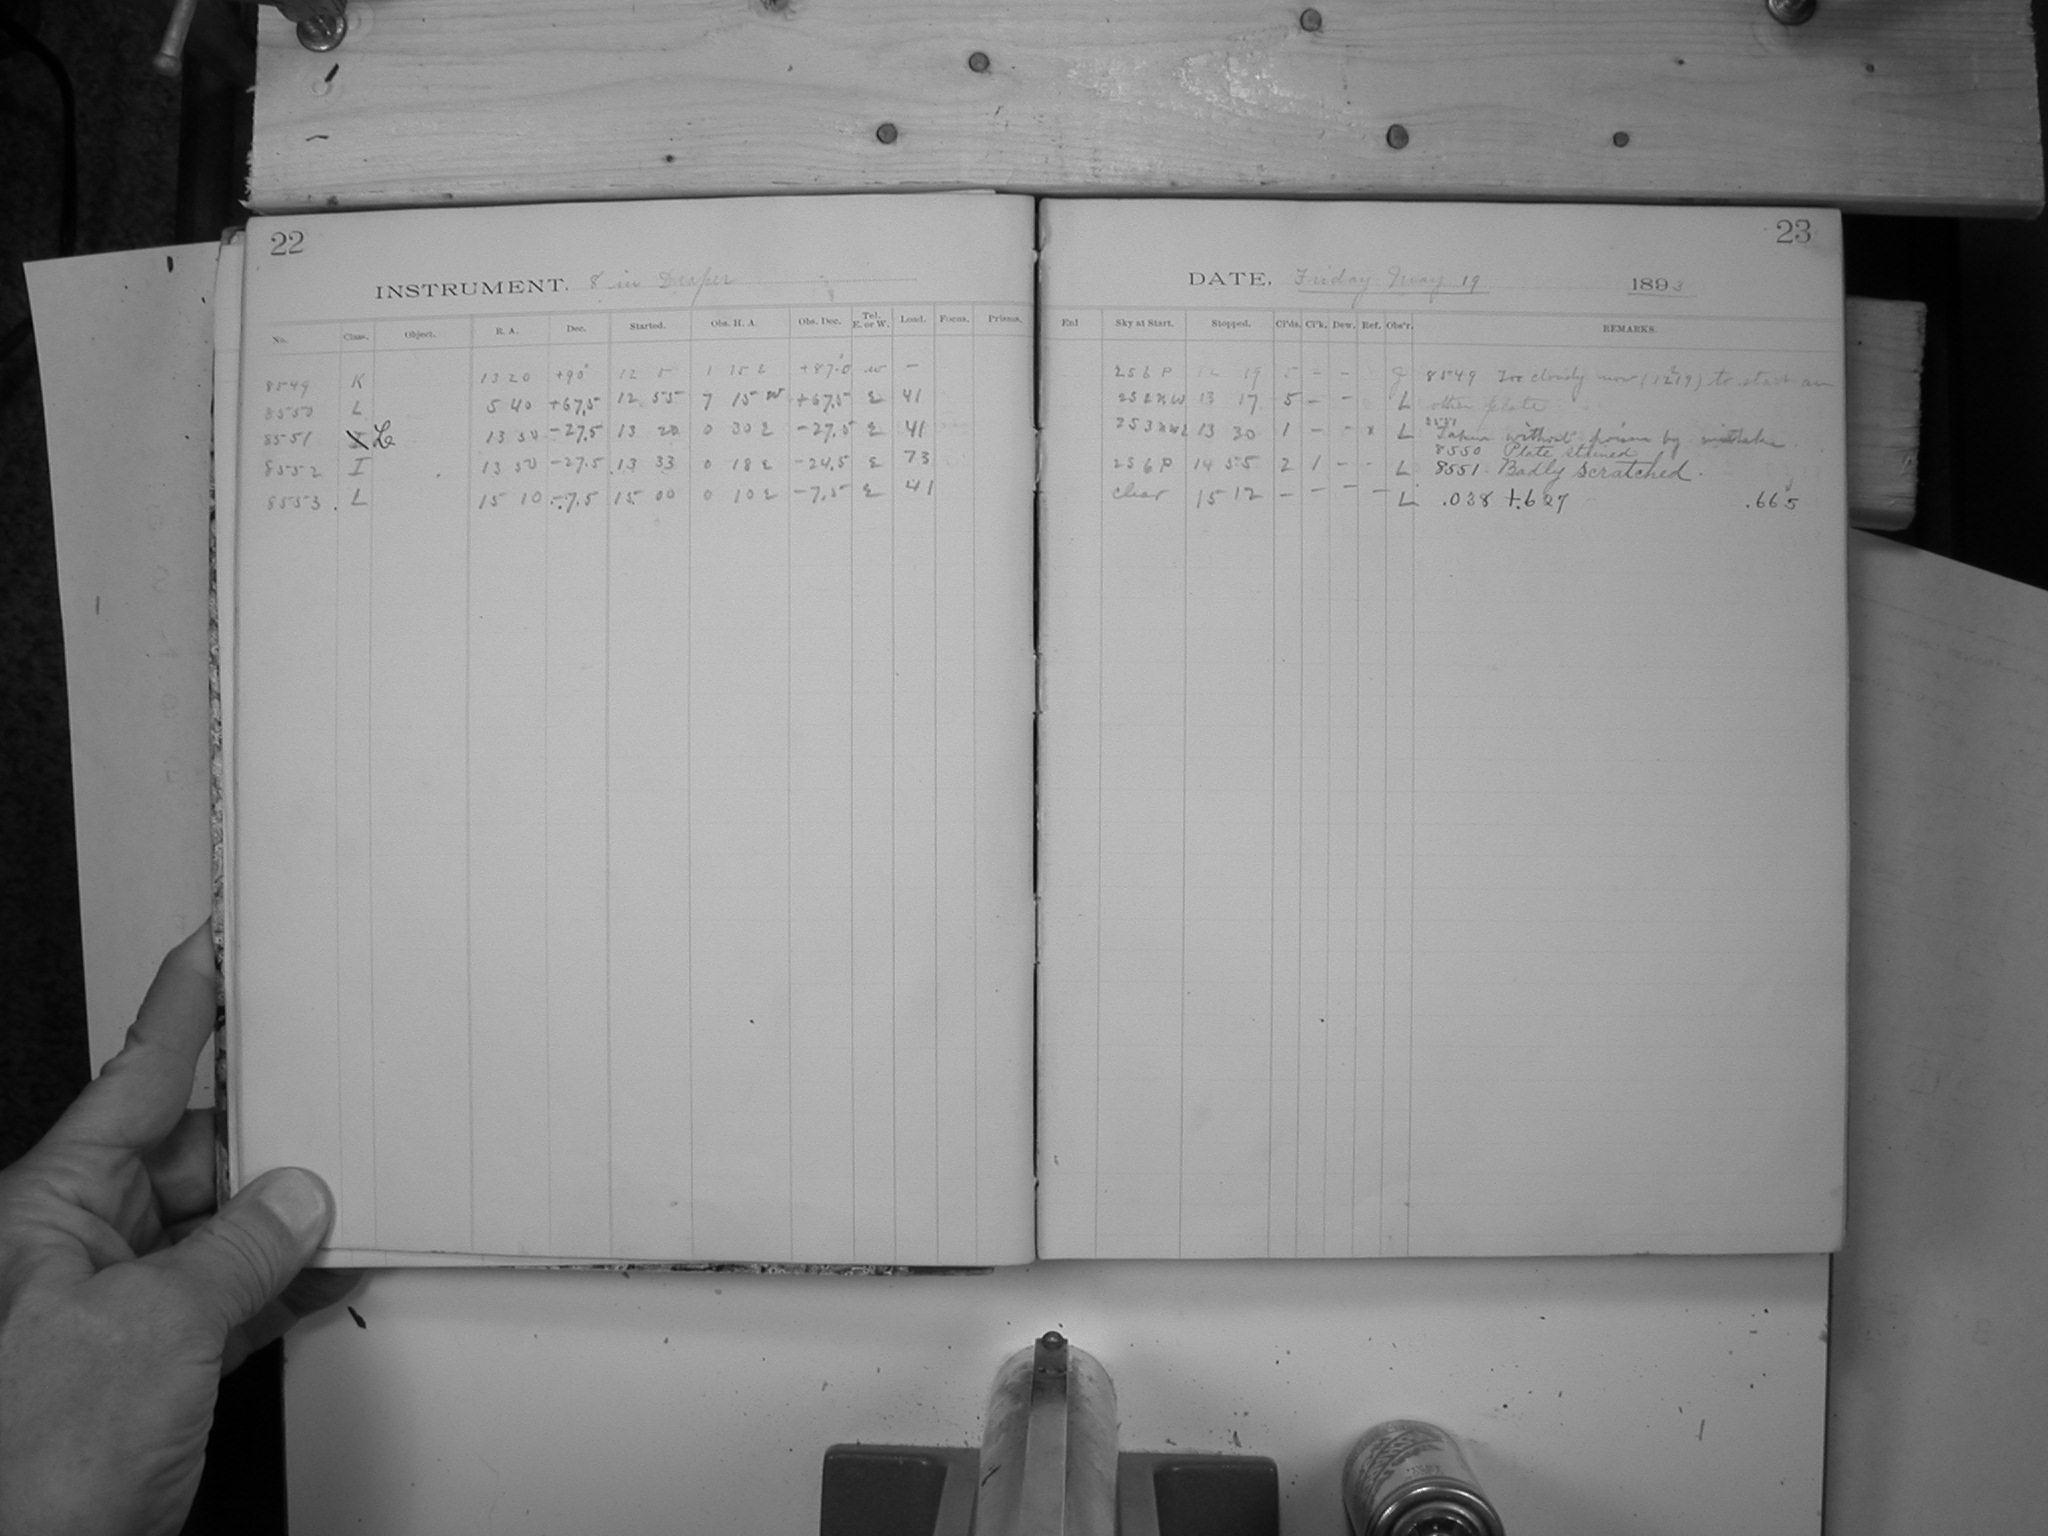 22
INSTRUMENT. 8 in Draper
No. Class. Object. R. A. Dec. Started. Obs. H. A. Obs. Dec. Tel. E. or W. Load. Focus. Prisms.
8549 K 13 20 +90° 12 5 1 15 E +87.0 w —
8550 L 5 40 +67.5 12 55 7 15 W +67.5 E 41
8551 Le 13 50 -27.5 13 20 0 30 E -27.5 E 41
8552 I 13 50 -27.5 13 33 0 18 E -24.5 E 73
8553 L 15 10 -7.5 15 00 0 10 E -7.5 E 41
23
DATE, Friday May 19 1893
Enl Sky at Start. Stopped. Cl'ds. Cl'k. Dew. Ref. Obs'r. REMARKS.
256 P 12 19 5 - - 8549 Too cloudy now (12 19) to start an
252 NW 13 17 5 - - L other plate
253 13 30 1 - - x L 8551 Taken without prism by mistake.
8550 Plate stained
256 P 14 55 2 1 - - L 8551 Badly Scratched.
clear 15 12 - - - - L .038 +.627 .665